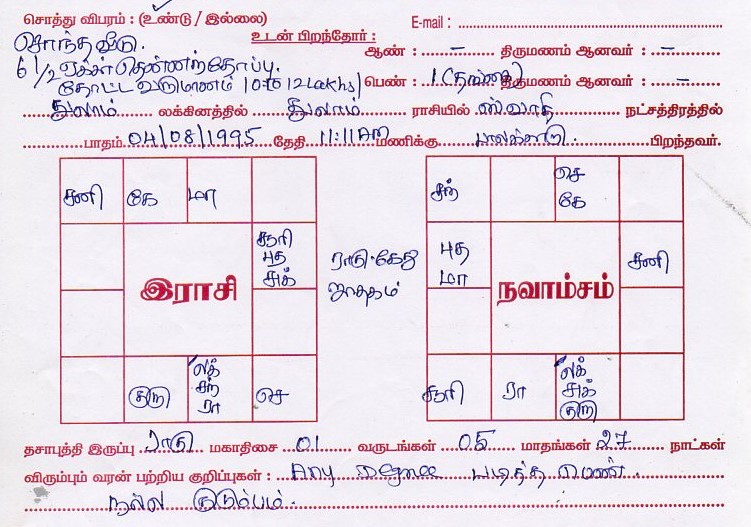 சொத்து விபரம் : (உண்டு / இல்லை) E-mail :
சொந்த வீடு. உடன் பிறந்தோர் : ஆண் : – திருமணம் ஆனவர் : –
6 1/2 ஏக்கர் தென்னந்தோப்பு.
தோட்ட வருமானம் 10 to 12 Lakhs) பெண் : 1 (தங்கை) திருமணம் ஆனவர் : –
துலாம் லக்கினத்தில் துலாம் ராசியில் ஸ்வாதி நட்சத்திரத்தில்
பாதம் 04/08/1995 தேதி 11:11 AM மணிக்கு பாலக்காடு பிறந்தவர்.
சனி கே மா
சூரி
புத
சுக்
இராசி
குரு
லக்
சந்
ரா
செ
ராகு-கேது
ஜாதகம்
சந்
செ
கே
புத
மா
சனி
நவாம்சம்
சூரி
ரா
லக்
சுக்
குரு
தசாபுத்தி இருப்பு ராகு மகாதிசை 01 வருடங்கள் 05 மாதங்கள் 27 நாட்கள்
விரும்பும் வரன் பற்றிய குறிப்புகள் : Any Degree படித்த பெண்.
நல்ல குடும்பம்.